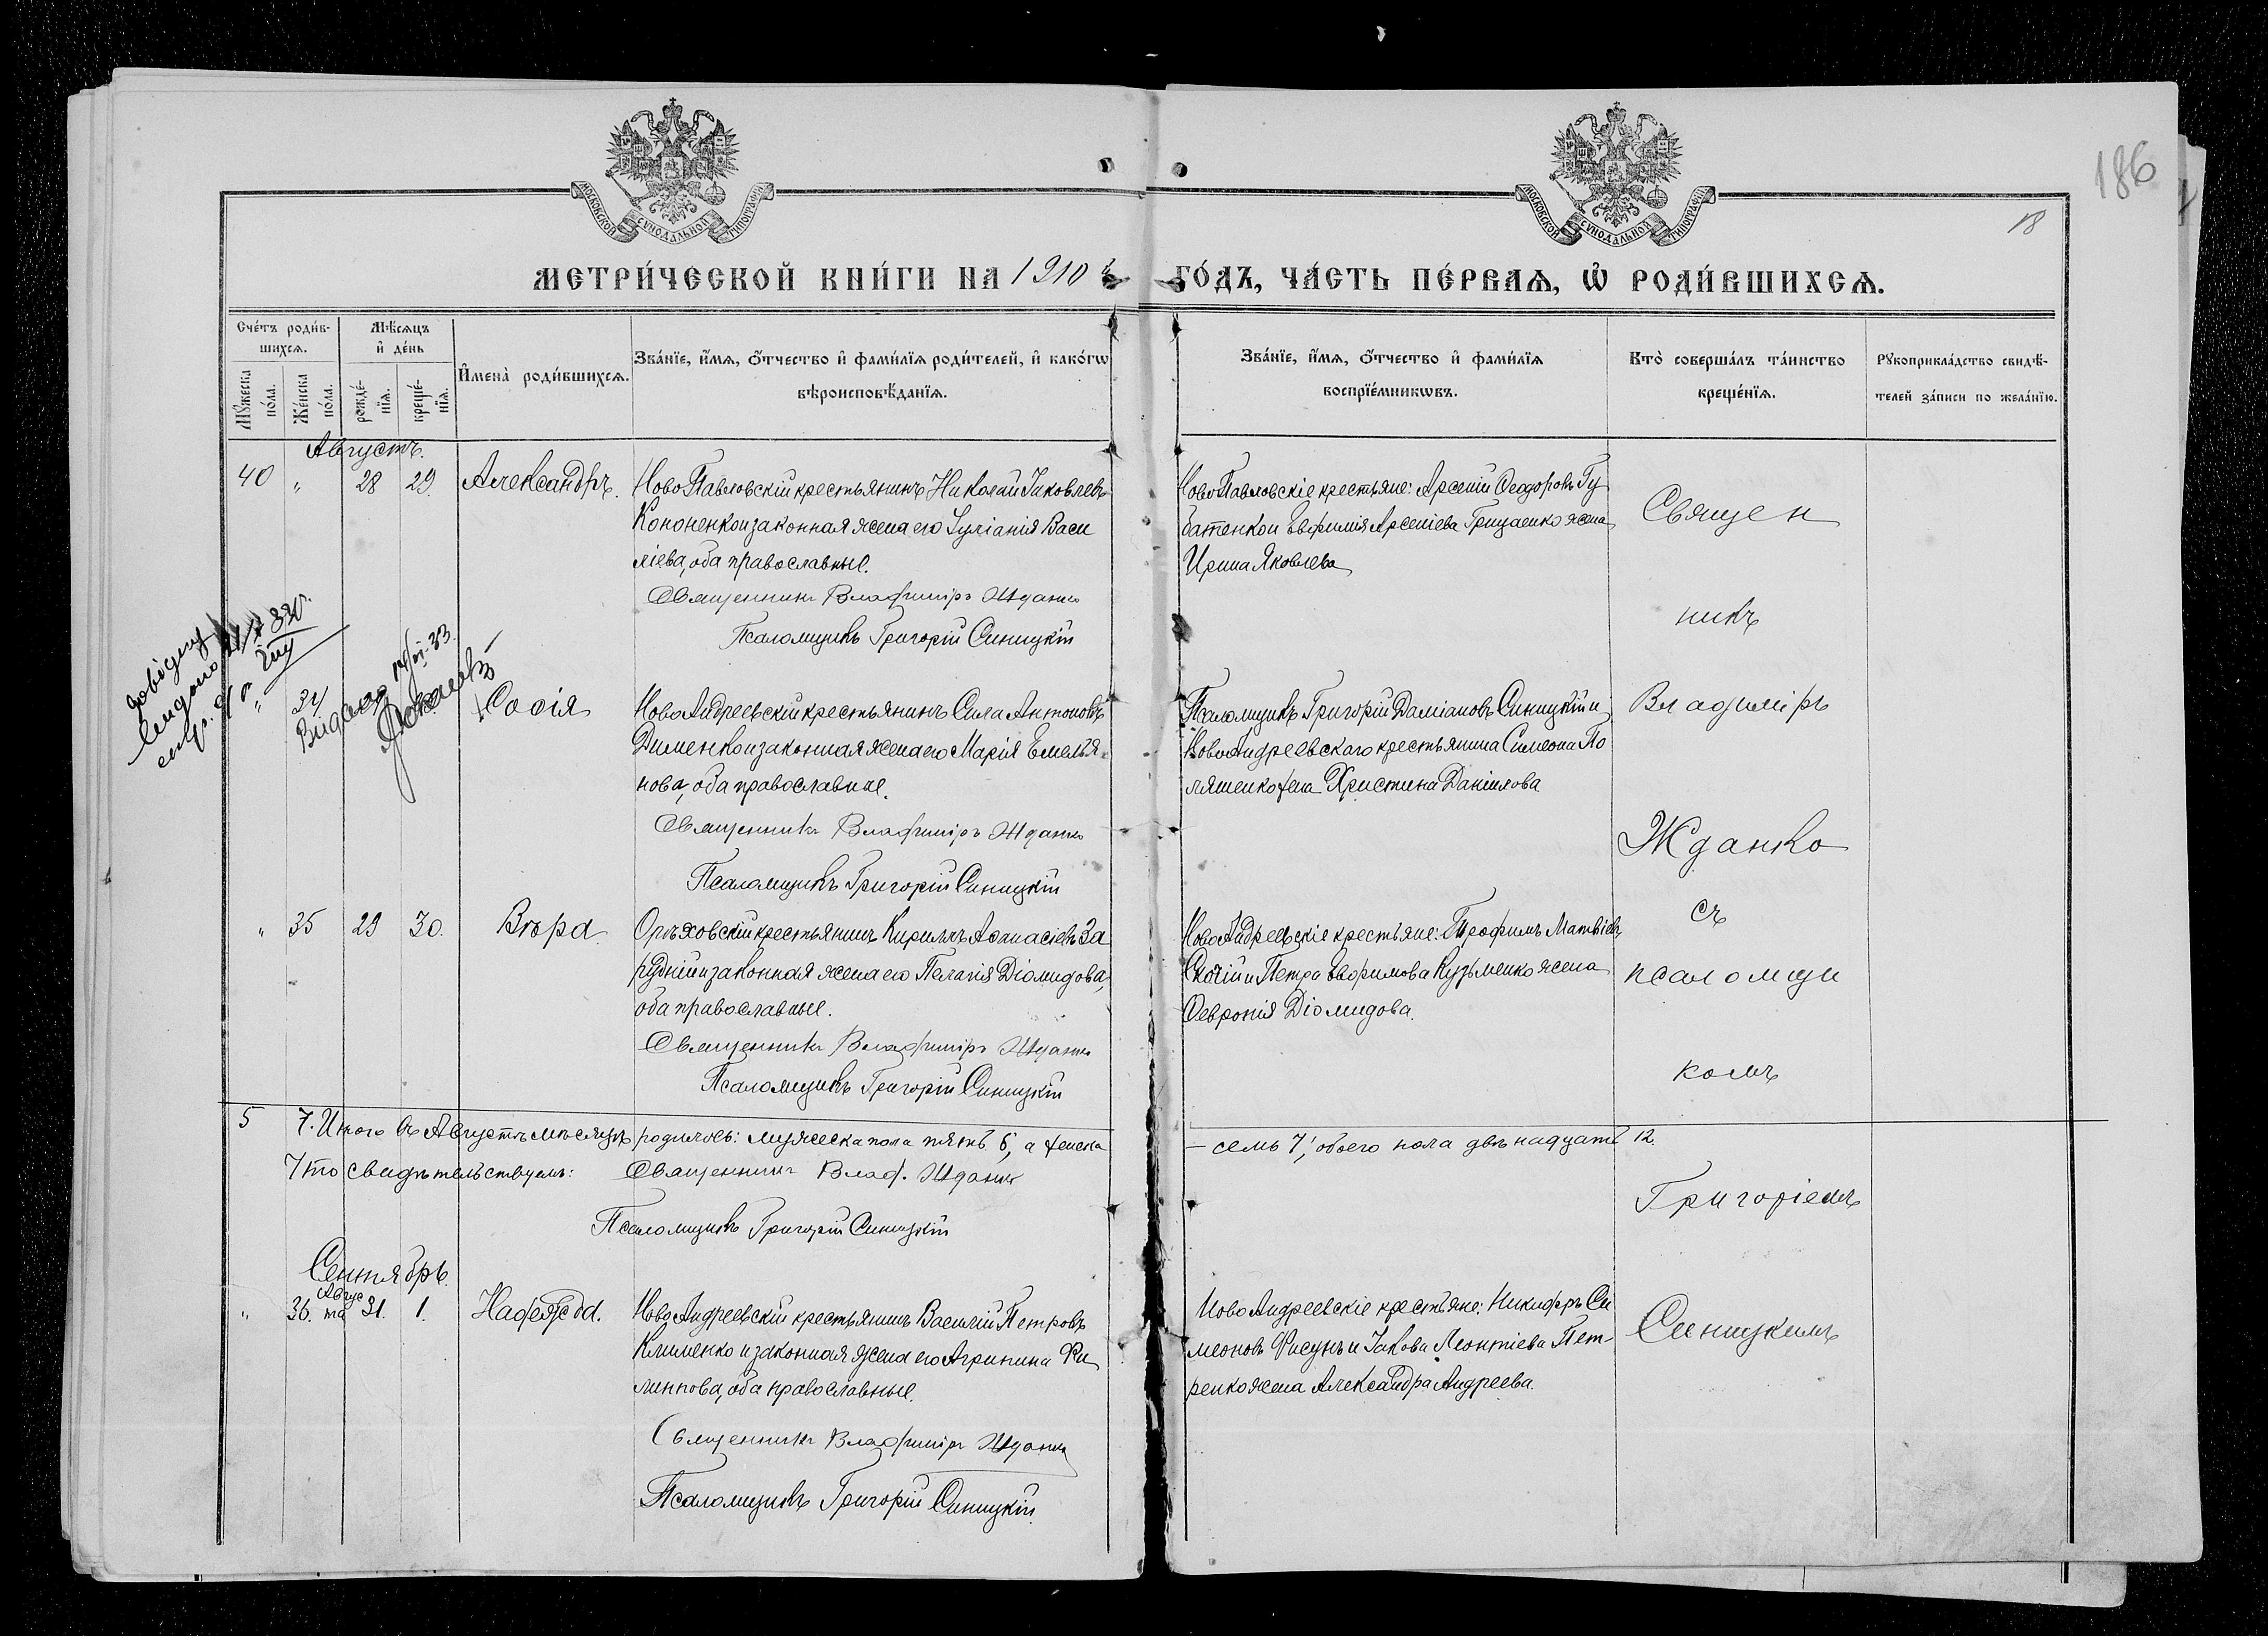 186
18
МОСКОВСКОЙ СѴНОДАЛЬНОЙ ТИПОГРАФІИ
МОСКОВСКОЙ СѴНОДАЛЬНОЙ ТИПОГРАФІИ
МЕТРИ́ЧЕСКОЙ КНИ́ГИ НА 1910 й ГО́ДЪ, ЧА́СТЬ ПЕ́РВАѦ, Ѡ҆ РОДИ́ВШИХСѦ.
Сче́тъ роди́в-
шихсѧ.
Мꙋ́жеска
по́ла.
Же́нска
по́ла.
Мѣ́сѧцъ
и҆ де́нь
рожде́-
нїѧ.
креще́-
нїѧ.
И҆мена̀ роди́вшихсѧ.
Зва́нїе, и҆́мѧ, ѻ҆́тчество и҆ фами́лїѧ роди́телей, и҆ како́гѡ
вѣроисповѣ́данїѧ.
Зва́нїе, и҆́мѧ, ѻ҆́тчество и҆ фами́лїѧ
воспрїе́мникѡвъ.
Кто̀ соверша́лъ та́инство
креще́нїѧ.
Рꙋкоприкла́дство свидѣ́-
телей за́писи по жела́нїю.
Августъ.
40 " 28 29. Александръ.
НовоПавловскій крестьянинъ Николай Іаковлевъ
Кононенко и законная жена его Іуліанія Васи
ліева, оба православные.
Священникъ Владиміръ Жданко
Псаломщикъ Григорій Синицкій
НовоПавловскіе крестьяне: Арсеній Ѳеодоровъ Гу
батенко и Евфимія Арсеніева Грицаенко жена
Ирина Яковлева
Священ
никъ
Владиміръ
Жданко
съ
псаломщи
комъ
Григоріемъ
Синицкимъ
" 34 Софія
НовоАндреевскій крестьянинъ Сила Антоновъ
Дименко и законная жена его Марія Емелья-
нова, оба православные.
Священникъ Владиміръ Жданко
Псаломщикъ Григорій Синицкій
Псаломщикъ Григорій Даміановъ Синицкій и
НовоАндреевскаго крестьянина Симеона По
ляшенко жена Христина Даніилова
" 35 29 30. Вѣра
Орѣховскій крестьянинъ Кириллъ Аѳанасіевъ За
рудній и законная жена его Пелагія Діомидова,
оба православные.
Священникъ Владиміръ Жданко
Псаломщикъ Григорій Синицкій
НовоАндреевскіе крестьяне: Трофимъ Матвіевъ
и Петра Евфимова Кузьменко жена
Ѳевронія Діомидова.
5 7. Итого въ Августѣ мѣсяцѣ родилось: мужеска пола пять 5, а женска
— семь 7, обоего пола двѣнадцать 12.
Что свидѣтельствуемъ: Священникъ Влад. Жданко
Псаломщикъ Григорій Синицкій
Сентябрь.
" 36. Августа 31. 1. Надежда.
НовоАндреевскій крестьянинъ Василій Петровъ
Клименко и законная жена его Агрипина Фи
липпова, оба православные.
Священникъ Владиміръ Жданко
Псаломщикъ Григорій Синицкій
НовоАндреевскіе крестьяне: Никифоръ Си
меоновъ Фисунъ и Іакова Леонтіева Пет-
ренко жена Александра Андреева.